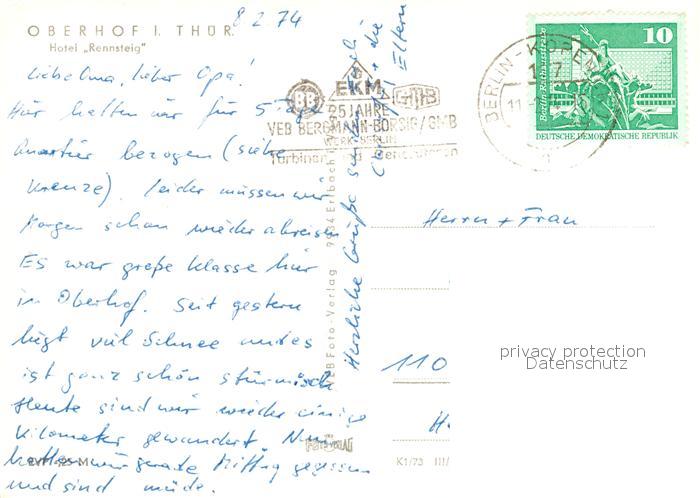 8 2 74
OBERHOF I. THÜR.
Hotel „Rennsteig"
Liebe Oma, lieber Opa!
Hier hatten wir für 5 Tage
Quartier bezogen (siehe
Kreuze). Leider müssen wir
Morgen schon wieder abreisen
Es war große Klasse hier
in Oberhof. Seit gestern
liegt viel Schnee und es
ist ganz schön stürmisch
Heute sind wir wieder einige
Kilometer gewandert. Nun
hatten wir gerade Mittag gegessen
und sind müde.
Herzliche Grüße
die
Eltern
BB
EKM
GMB
25 JAHRE
VEB BERGMANN-BORSIG/GMB
WERK BERLIN
Turbinen und Generatoren
BERLIN-KÖPEN
11
10
Berlin, Rathausstraße
DEUTSCHE DEMOKRATISCHE REPUBLIK
Foto-Verlag 9934 Erlbach
Herrn + Frau
110
K1/73 III/
privacy protection
Datenschutz